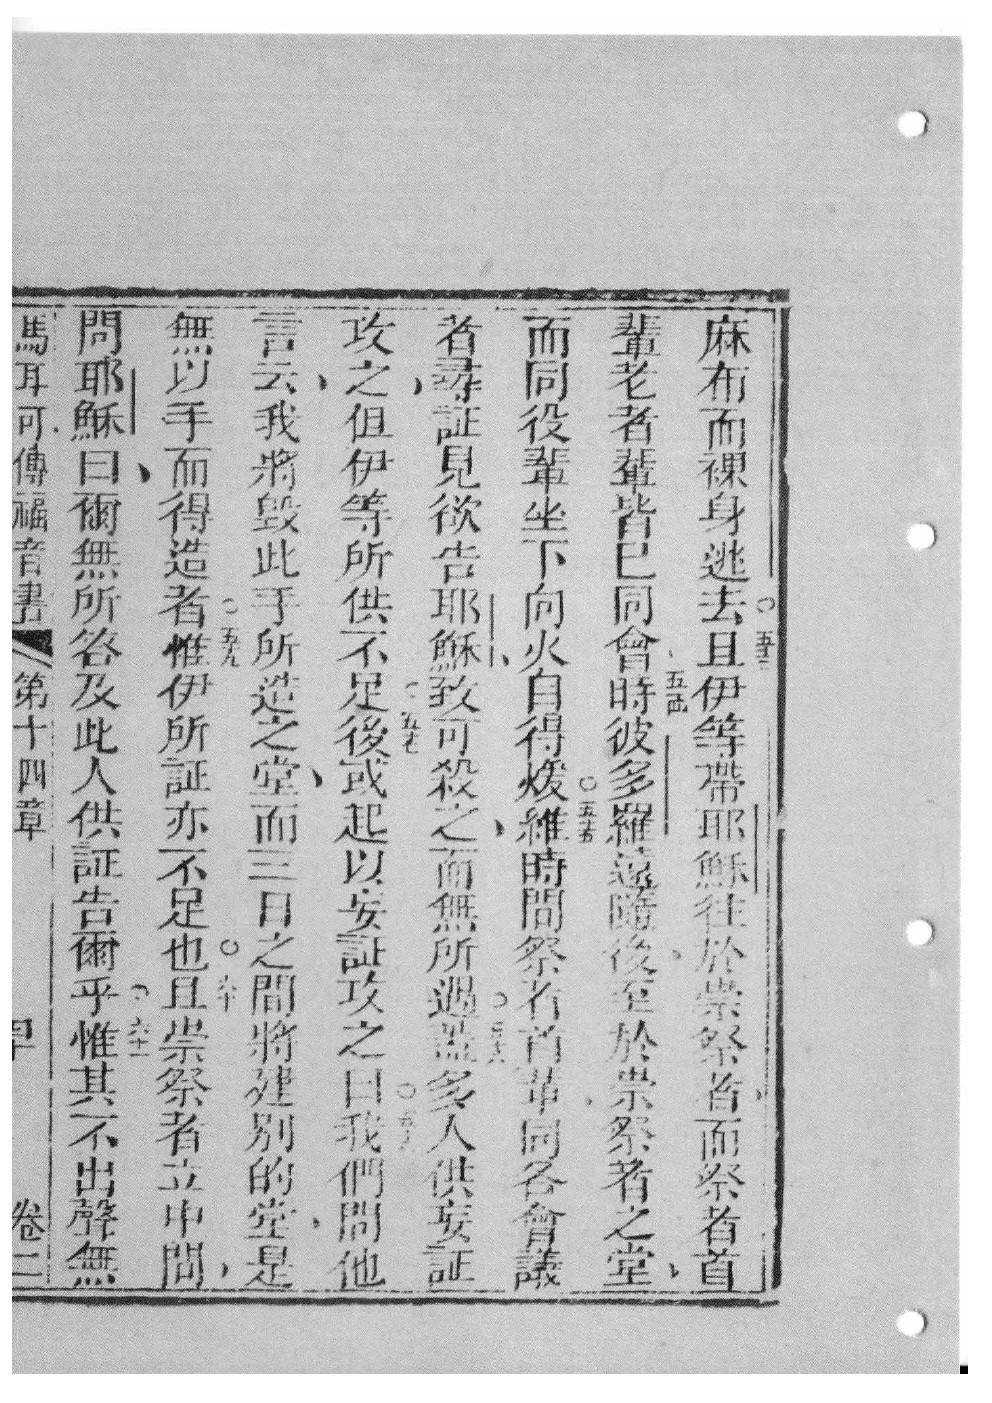 麻布而裸身逃去○五三且伊等帶耶穌往於崇祭者而祭者首
輩老者輩皆已同會時○五四彼多羅遠隨後至於崇祭者之堂
而同役輩坐下向火自得煖○五十五維時間祭者首輩同各會議
者尋証見欲告耶穌致可殺之而無所遇○五十六蓋多人供妄証
攻之但伊等所供不足○五七後或起以妄証攻之曰○五八我們聞他
言云我將毀此手所造之堂而三日之間將建別的堂是
無以手而得造者○五九惟伊所証亦不足也○六十且崇祭者立中間
問耶穌曰爾無所答及此人供証告爾乎○六十一惟其不出聲無
馬耳可傳福音書 第十四章 早 卷二